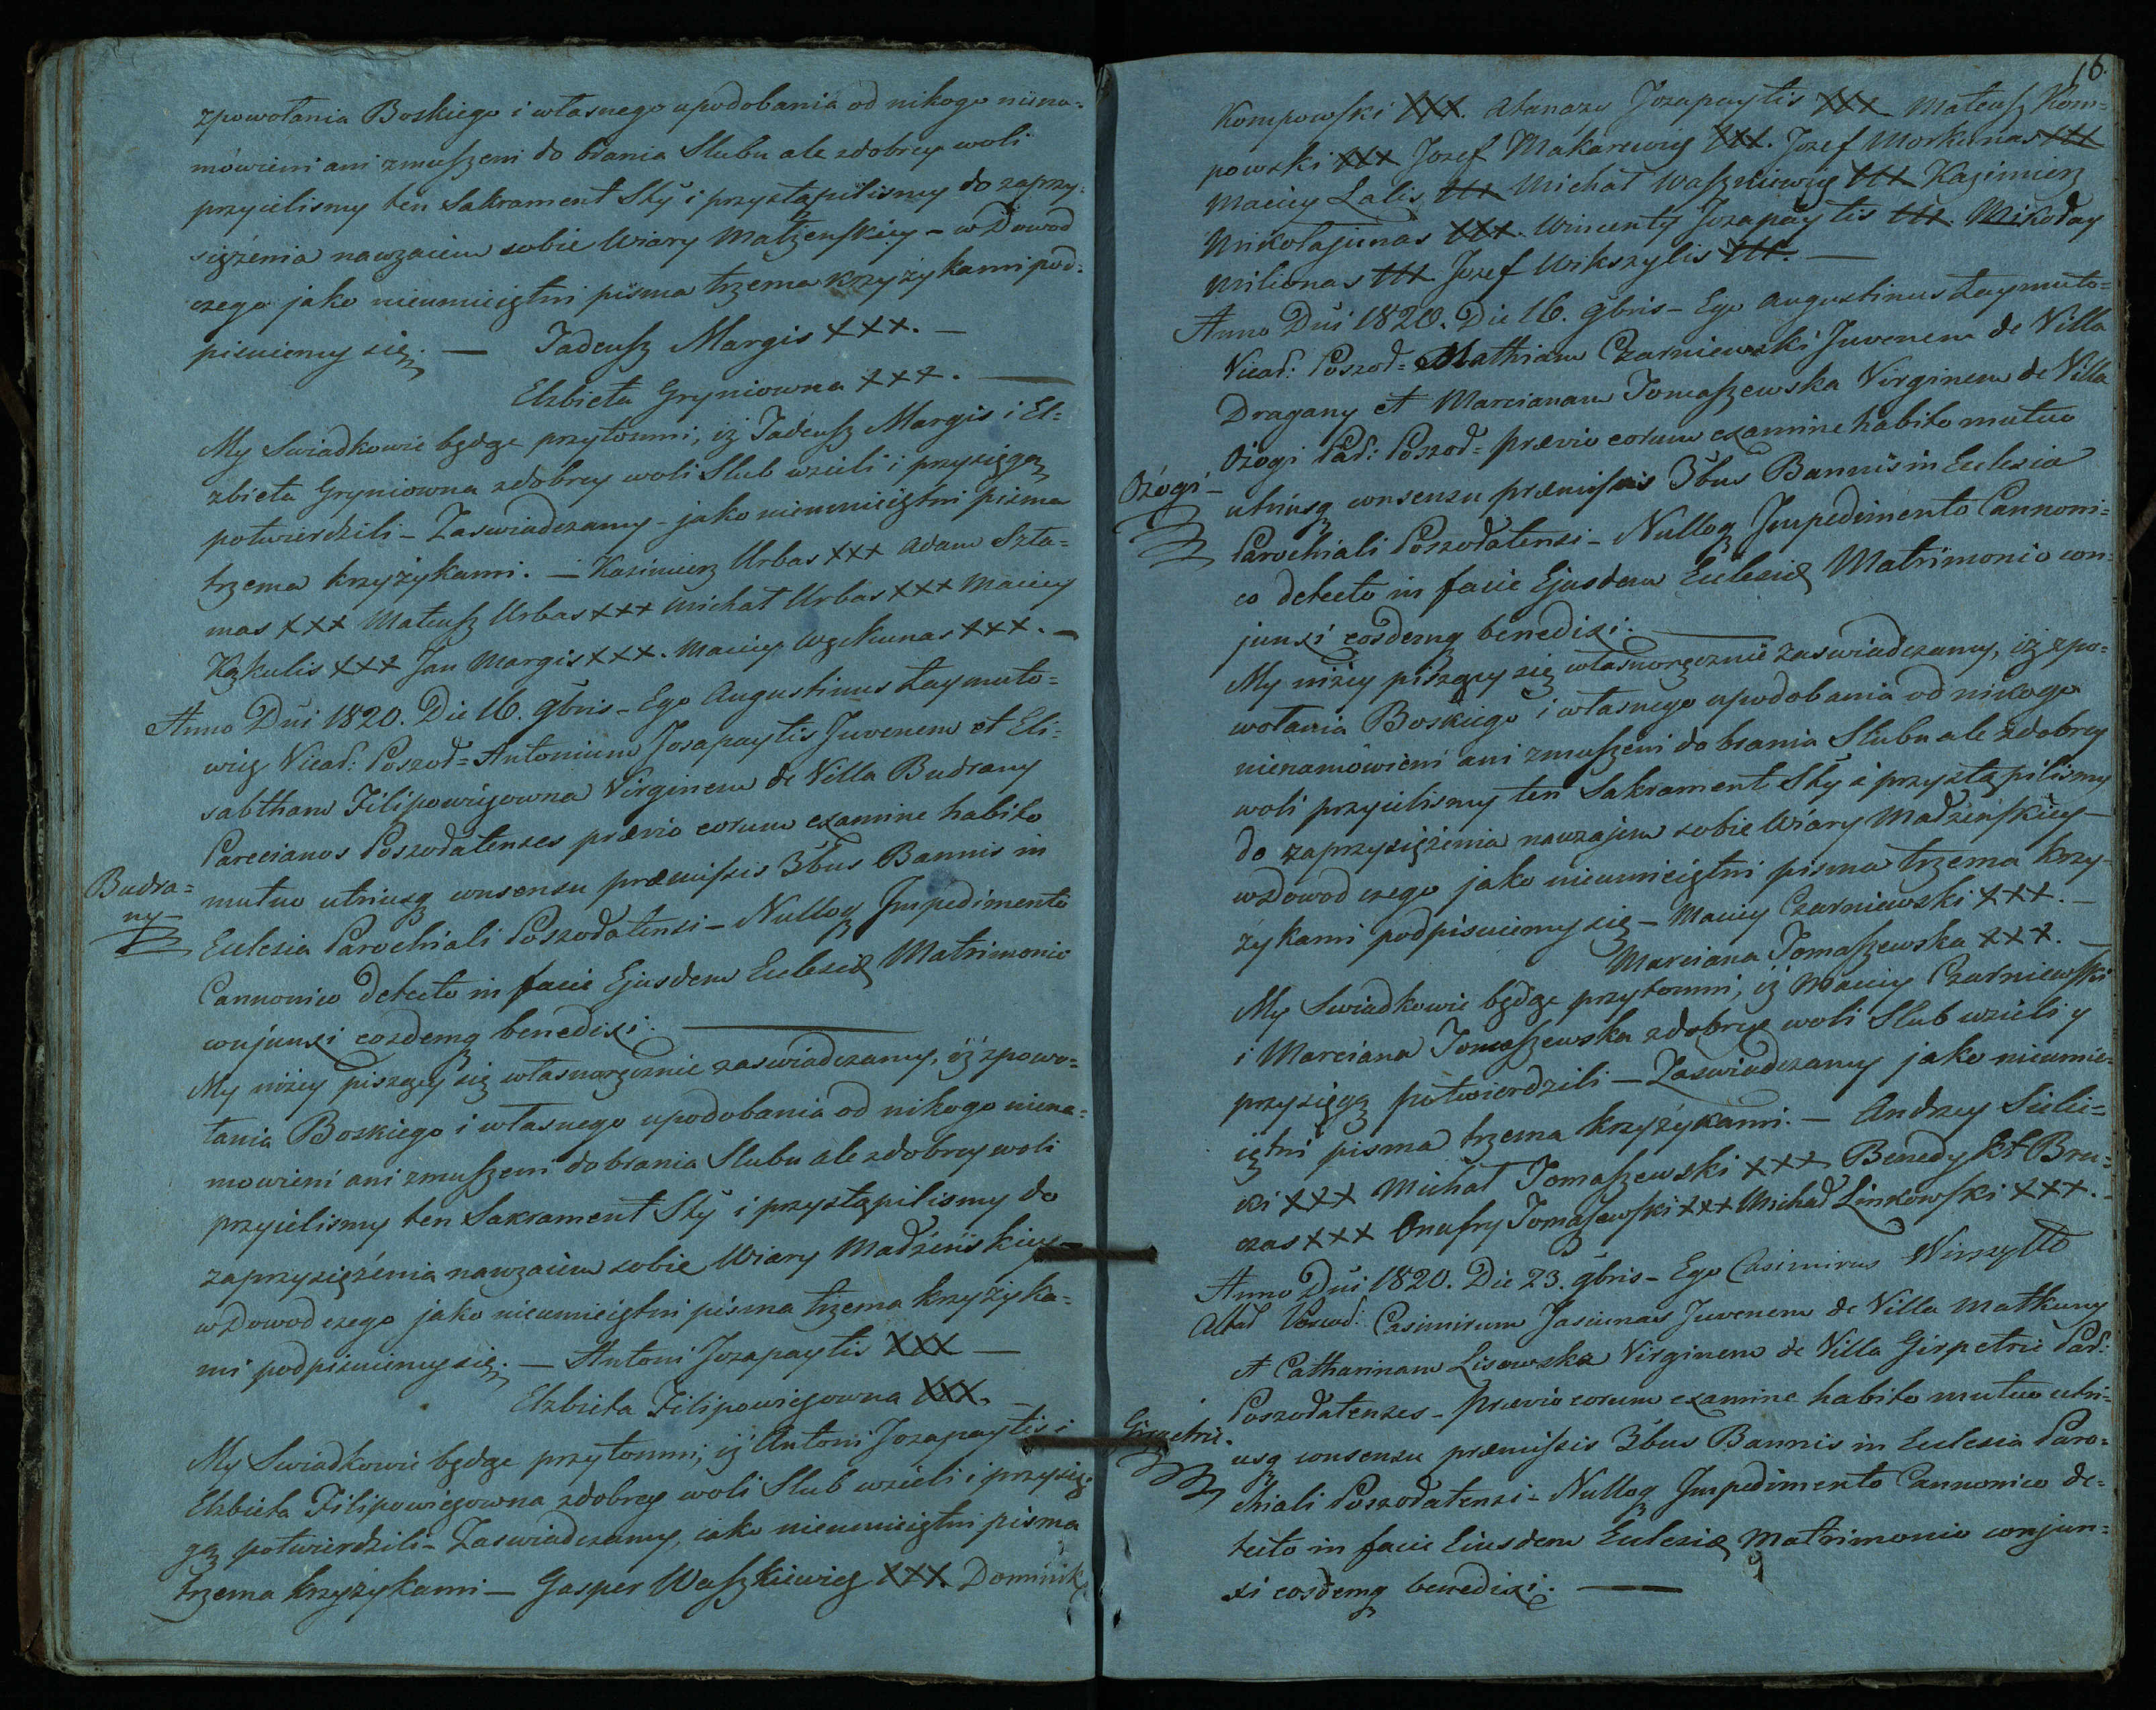 zpowołania Boskiego i własnego upodobania od nikogo niena-
mówieni ani zmuszeni do brania Slubu ale zdobrey woli
przyielismy ten Sakrament Sty i przystąpilismy do zaprzy-
siężenia nawzaiem sobie Wiary Małżenskiey – w Dowod
czego jako nieumieiętni pisma trzema krzyżykami pod-
pisuiemy się. — Tadeusz Margis XXX. —
Elzbieta Gryniowna XXX. —
My Swiadkowie będąc przytomni, iż Tadeusz Margis i El=
zbieta Gryniowna zdobrey woli Slub wzieli i przysięgą
potwierdzili – Zaswiadczamy – jako nieumieiętni pisma
trzema krzyżykami. — Kazimierz Urbas XXX Adam Szta=
mas XXX Mateusz Urbas XXX Michał Urbas XXX Maciey
Kąkulis XXX Jan Margis XXX. Maciey Węckunas XXX. —
Anno Dni 1820. Die 16. 9bris – Ego Augustinus Łaymuto=
wicz Vicad: Poszod= Antonium Jozapaytis Juvenem et Eli=
sabtham Filipowiczowna Virginem de Villa Budrany
Parecianos Poszodatenses prævio eorum examine habito
Budra=
ny
mutuo utriusq consensu præmissis 3bus Bannis in
Eclesia Parochiali Poszodatensi – Nulloq Impedimento
Cannonico detecto in facie Ejusdem Eclesiæ Matrimonio
conjunxi eosdemq benedixi. —
My niżey piszący się własnoręcznie zaswiadczamy, iż zpowo=
łania Boskiego i własnego upodobania od nikogo niena=
mowieni ani zmuszeni dobrania Slubu ale zdobrey woli
przyielismy ten Sakrament Sty i przystąpilismy do
zaprzysiężenia nawzaiem sobie Wiary Madżenskiey –
w Dowod czego jako nieumieiętni pisma trzema krzyżyka=
mi podpisuiemy się. — Antoni Jozapaytis XXX —
Elzbieta Filipowiczowna XXX. —
My Swiadkowie będąc przytomni, iż Antoni Jozapaytis i
Elzbieta Filipowiczowna zdobrey woli Slub wzieli i przysię=
gą potwierdzili – Zaswiadczamy, iako nieumieiętni pisma
trzema krzyżykami — Gasper Waszkiewicz XXX. Dominik
16.
Kompowski XXX. Atanazy Jozapaytis XXX Mateusz Kom=
powski XXX Jozef Makarewicz XXX. Jozef Morkunas XXX
Maciey Lalis XXX Michał Waszkiewicz XXX Kazimierz
Mikołajunas XXX. Wincenty Jozapaytis XXX. Mikołay
Milionas XXX Jozef Wikszylis XXX. —
Anno Dni 1820. Die 16. 9bris – Ego Augustinus Łaymuto=
Vicad: Poszod= Mathiam Czarniewski Juvenem de Villa
Dragany et Marcianam Tomaszewska Virginem de Villa
Ożogi Pad: Poszod= prævio eorum examine habito mutuo
Ożogi –
utriusq consensu præmissis 3bus Bannis in Eclesia
Parochiali Poszodatensi – Nulloq Impedimento Cannoni=
co detecto in facie Ejusdem Eclesiæ Matrimonio con=
junxi eosdemq benedixi. —
My niżey piszący się własnoręcznie zaswiadczamy, iż zpo=
wołania Boskiego i własnego upodobania od nikogo
nienamówieni ani zmuszeni do brania Slubu ale zdobrey
woli przyielismy ten Sakrament Sty i przystąpilismy
do zaprzysiężenia nawzajem sobie Wiary Madżenskiey –
wDowod czego jako nieumieiętni pisma trzema krzy=
żykami podpisuiemy się – Maciey Czarniewski XXX. —
Marciana Tomaszewska XXX. —
My Swiadkowie będąc przytomni, iż Maciey Czarniewski
i Marciana Tomaszewska zdobrye woli Slub wzieli y
przysięgą potwierdzili — Zaswiadczamy jako nieumie=
iętni pisma trzema krzyżykami. — Andrzey Sielic=
ki XXX Michał Tomaszewski XXX Benedykt Bru=
zas XXX Onufry Tomaszewski XXX Michał Linkowski XXX. –
Anno Dni 1820. Die 23. 9bris – Ego Casimirus Wirszyłło
Casimirum Jasiunas Juvenem de Villa Matkuny
et Catharinam Lisowska Virginem de Villa Girpetrie Pad:
Poszodatenses – prævio eorum examine habito mutuo utri=
Girpetrie.
usq consensu præmissis 3bus Bannis in Eclesia Paro=
chiali Poszodatensi – Nulloq Impedimento Cannonico de=
tecto in facie Eiusdem Eclesiæ Matrimonio conjun=
xi eosdemq benedixi. —